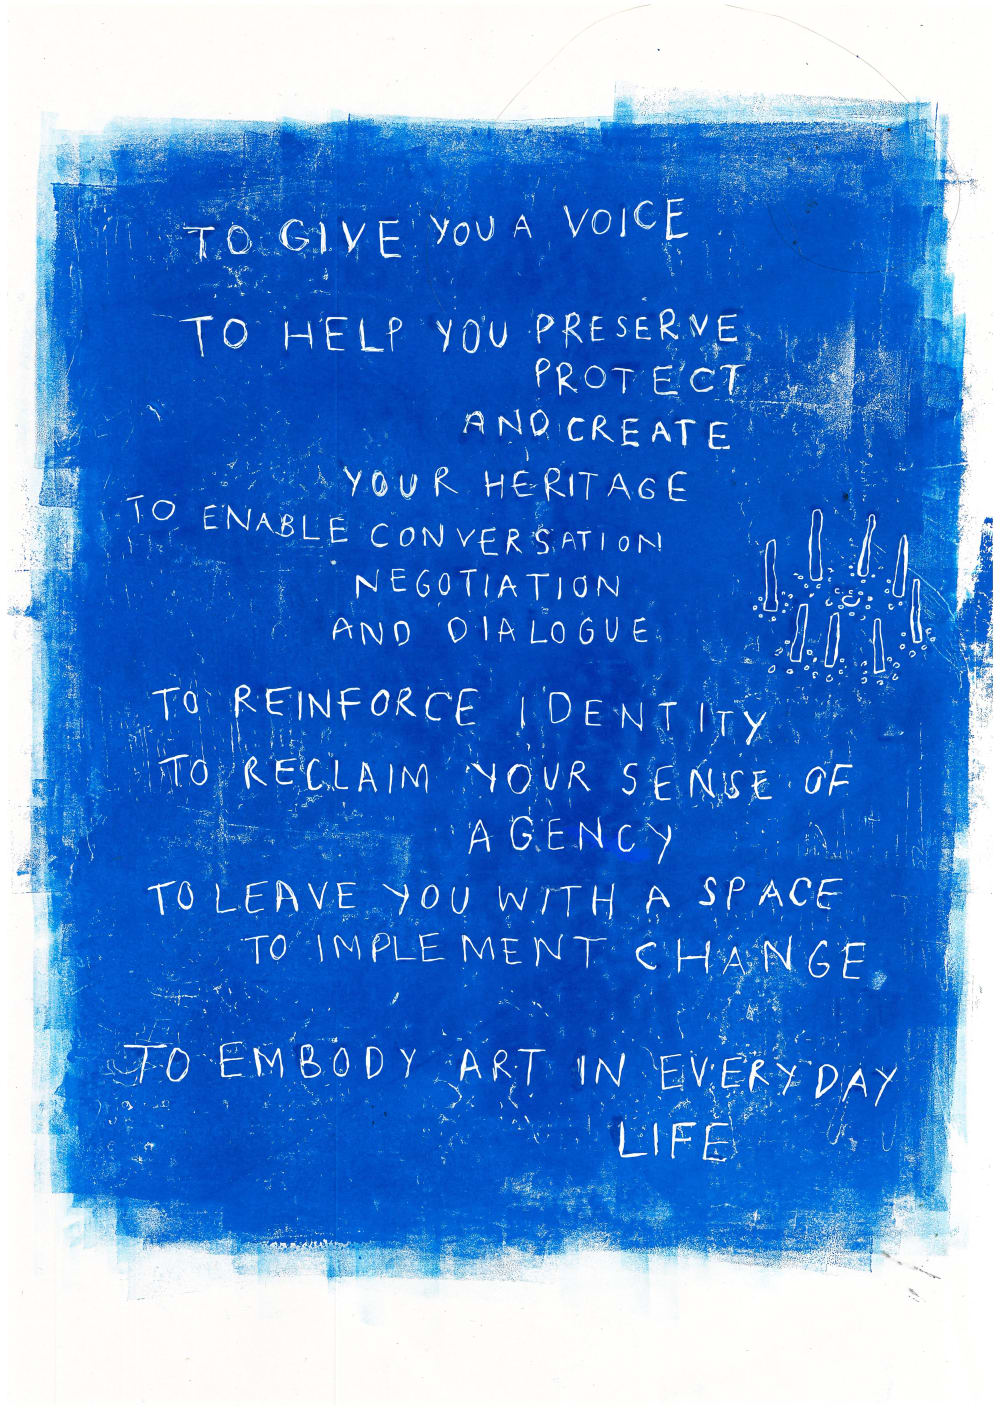 TO GIVE YOU A VOICE
TO HELP YOU PRESERVE
PROTECT
AND CREATE
YOUR HERITAGE
TO ENABLE CONVERSATION
NEGOTIATION
AND DIALOGUE
TO REINFORCE IDENTITY
TO RECLAIM YOUR SENSE OF
AGENCY
TO LEAVE YOU WITH A SPACE
TO IMPLEMENT CHANGE
TO EMBODY ART IN EVERYDAY
LIFE